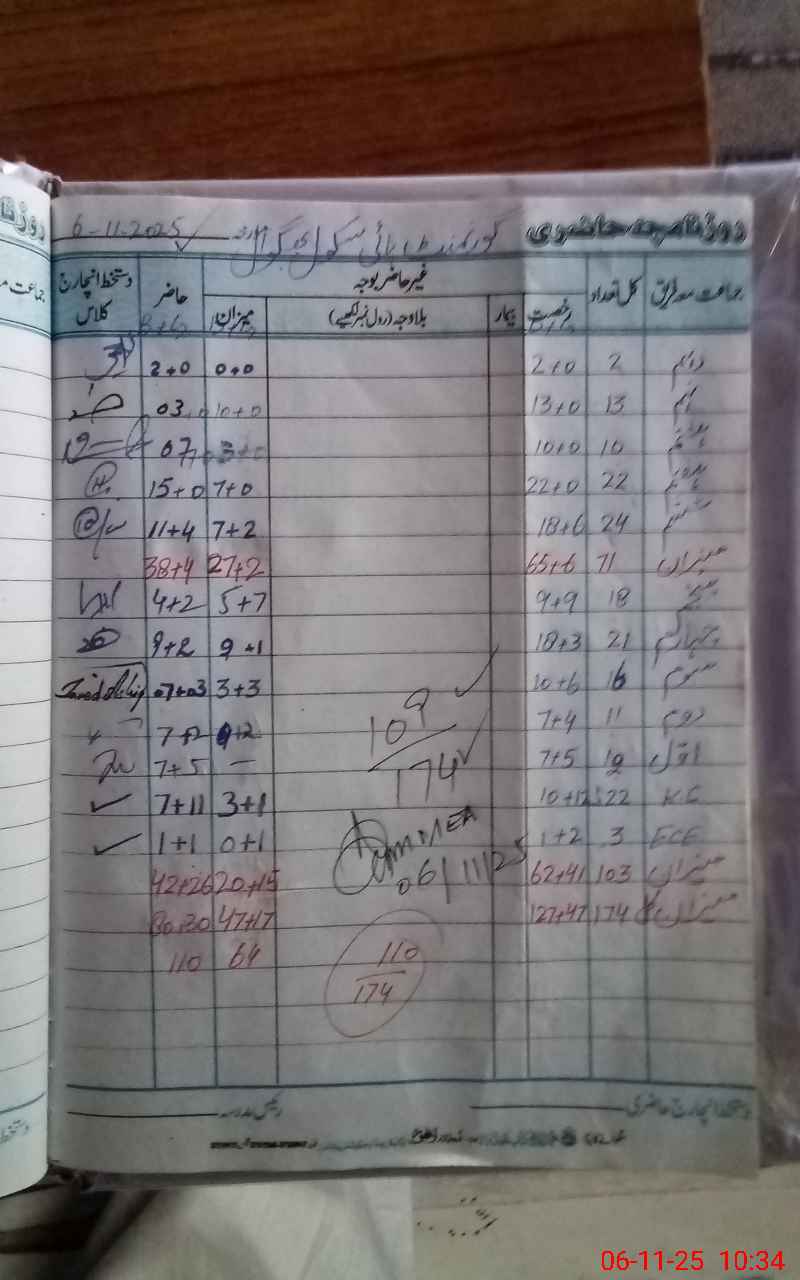 روزنامچہ حاضری گورنمنٹ ہائی سکول 6-11-2025
جماعت معہ فریق کل تعداد رخصت بیمار بلاوجہ (رول نمبر لکھیے) میزان حاضر دستخط انچارج کلاس
غیر حاضر بوجہ
B+G
دہم 2 2+0 0+0 2+0
نہم 13 13+0 10+0 03
ہشتم 10 10+0 3+0 07
ہفتم 22 22+0 7+0 15+0
ششم 24 18+6 7+2 11+4
میزان 71 65+6 27+2 38+4
پنجم 18 9+9 5+7 4+2
چہارم 21 18+3 9+1 9+2
سوم 16 10+6 3+3 07+03
دوم 11 7+4
اول 12 7+5 — 7+5
KG 22 10+12 3+1 7+11
ECE 3 1+2 0+1 1+1
میزان 103 62+41 20+15 42+26
میزان 174 127+47 47+17 80+30
64 110
109
174
MEA
06/11/25
110
174
دستخط انچارج حاضری رئیس مدرسہ
06-11-25 10:34